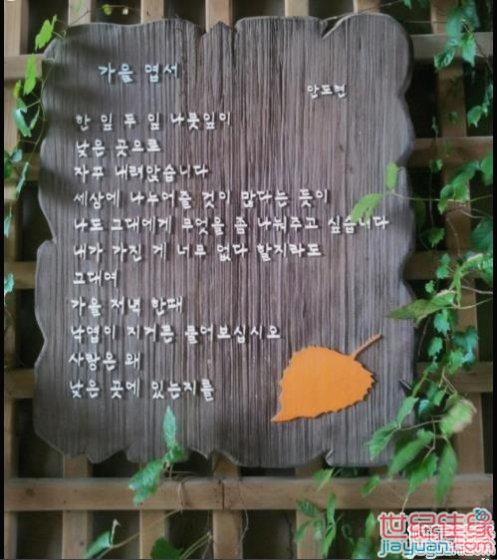 가을 엽서
안도현
한 잎 두 잎 나뭇잎이
낮은 곳으로
자꾸 내려앉습니다
세상에 나누어줄 것이 많다는 듯이
나도 그대에게 무엇을 좀 나눠주고 싶습니다
내가 가진 게 너무 없다 할지라도
그대여
가을 저녁 한때
낙엽이 지거든 물어보십시오
사랑은 왜
낮은 곳에 있는지를
世纪佳缘
jiayuan.com